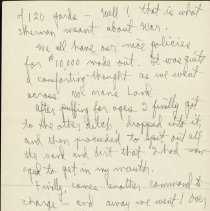 of 120 yards - Well! that is what
Sherman meant about War.
We all have our nice policies
for $10,000 made out. It was quite
a comforting thought as we went
across No Man's Land.
After puffing for ages I finally got
to the other ditch, dropped into it,
and then proceeded to spit out all
the sand and dirt that I had man-
aged to get in my mouth.
Finally comes another command to
charge - and away we went! Over